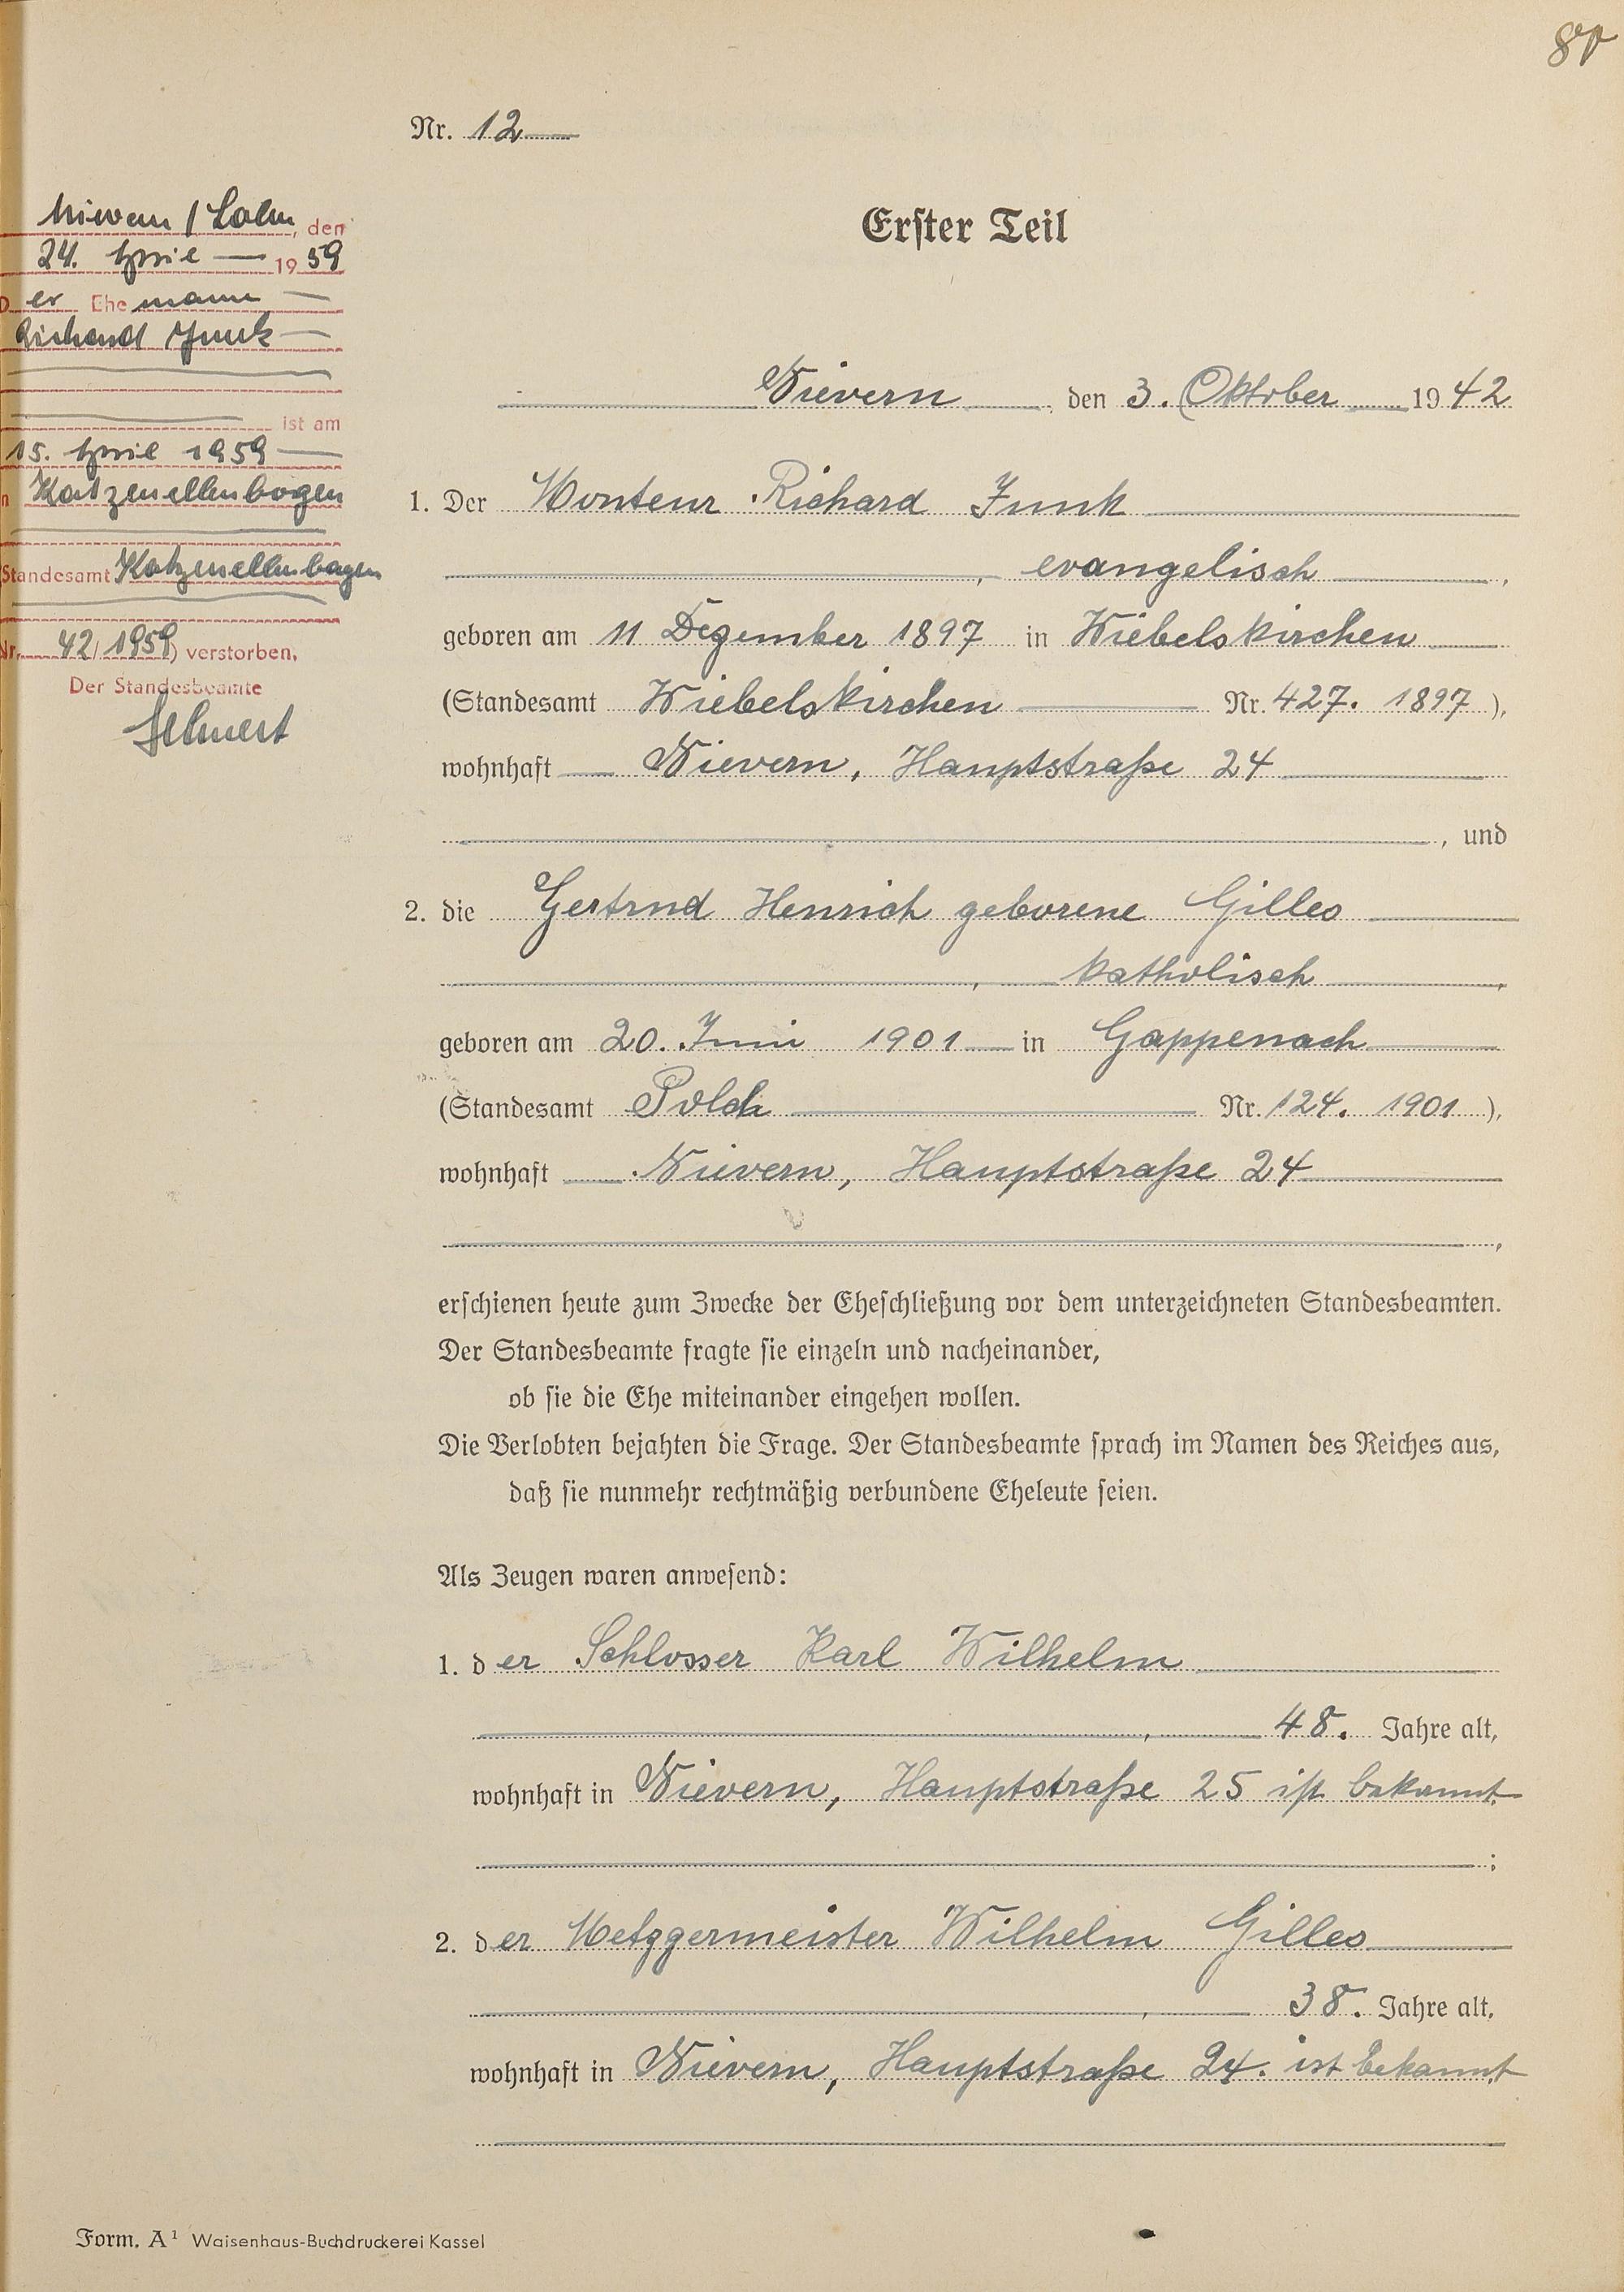 Nr. 12
Erster Teil
Nievern, den 3. Oktober 1942
1. Der Monteur Richard Junk
, evangelisch,
geboren am 11 Dezember 1897 in Wiebelskirchen
(Standesamt Wiebelskirchen Nr. 427. 1897),
wohnhaft Nievern, Hauptstraße 24
, und
2. die Gertrud Henrich geborene Gilles
, katholisch,
geboren am 20. Juni 1901 in Gappenach
(Standesamt Polch Nr. 124. 1901),
wohnhaft Nievern, Hauptstraße 24
,
erschienen heute zum Zwecke der Eheschließung vor dem unterzeichneten Standesbeamten.
Der Standesbeamte fragte sie einzeln und nacheinander,
ob sie die Ehe miteinander eingehen wollen.
Die Verlobten bejahten die Frage. Der Standesbeamte sprach im Namen des Reiches aus,
daß sie nunmehr rechtmäßig verbundene Eheleute seien.
Als Zeugen waren anwesend:
1. der Schlosser Karl Wilhelm
, 48. Jahre alt,
wohnhaft in Nievern, Hauptstraße 25 ist bekannt
;
2. der Metzgermeister Wilhelm Gilles
, 38. Jahre alt,
wohnhaft in Nievern, Hauptstraße 24. ist bekannt
Nievern / Lahn, den
24. April 1959
Der Ehemann
Richard Junk
ist am
15. April 1959
n Katzenellenbogen
Standesamt Katzenellenbogen
Nr. 42/1959) verstorben.
Der Standesbeamte
Form. A¹ Waisenhaus-Buchdruckerei Kassel